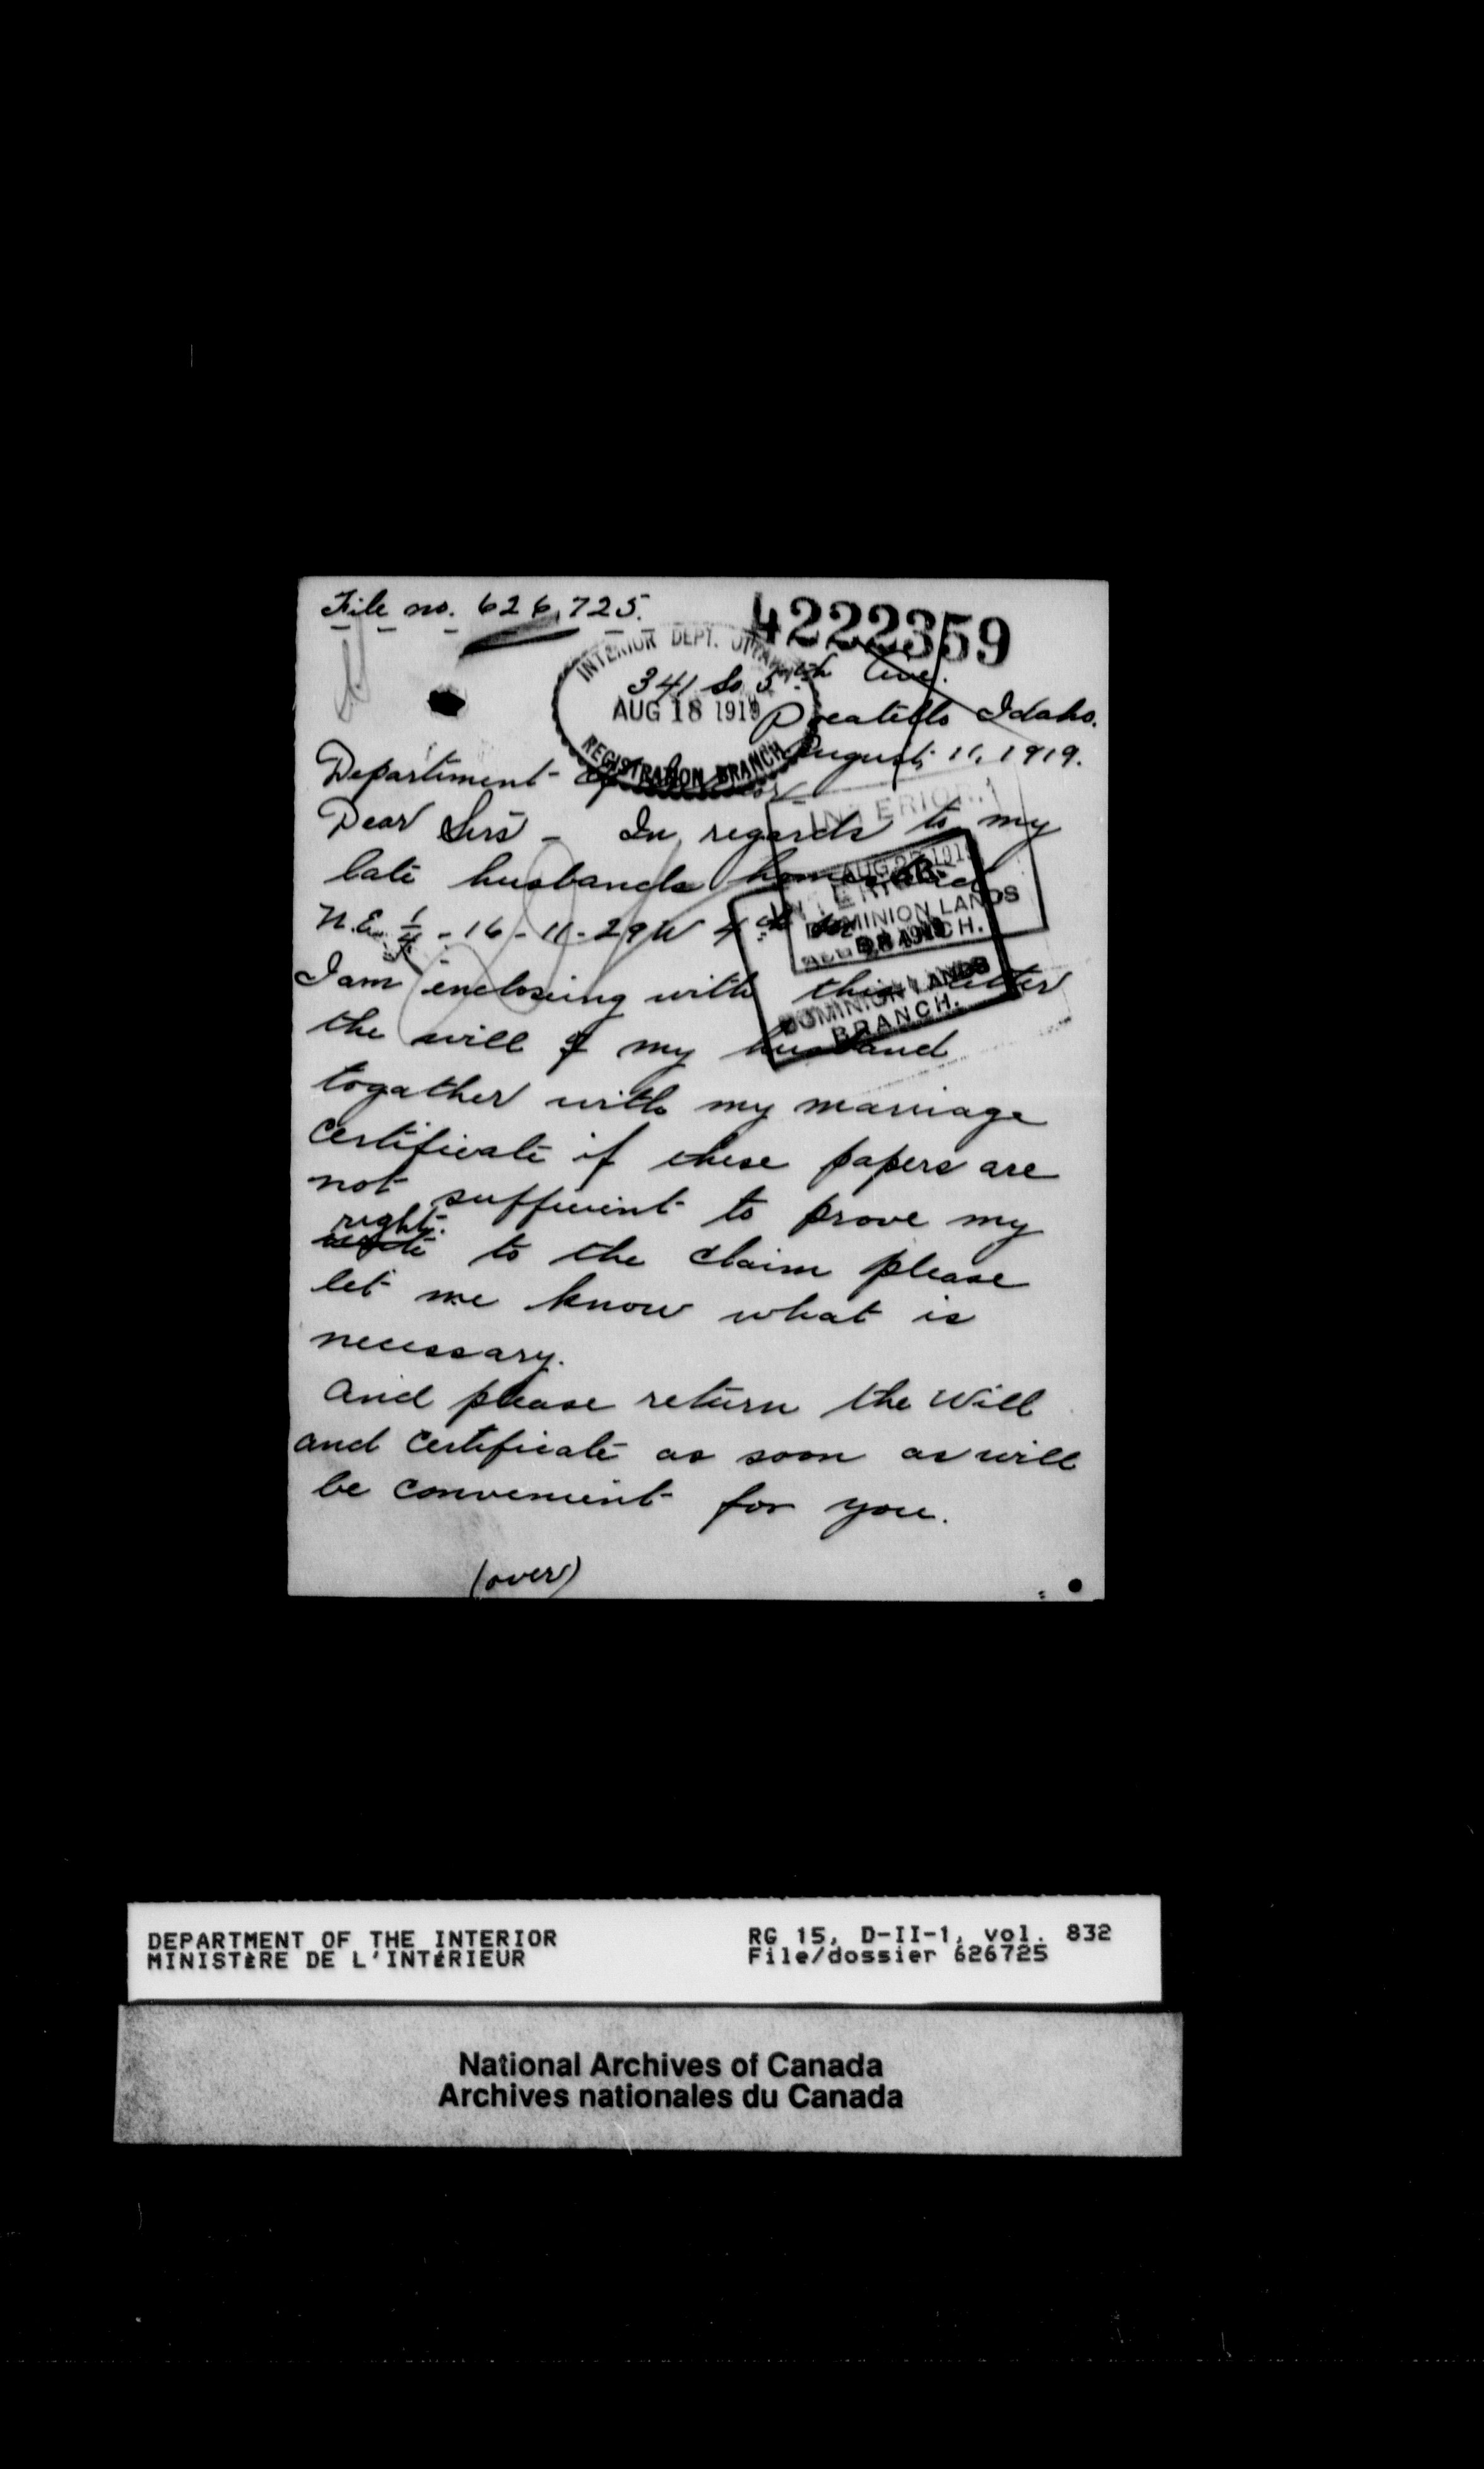 File no. 626,725.
4222359
INTERIOR DEPT. OTTAWA
341 So 5th Ave.
AUG 18 1919
Pocatello Idaho.
REGISTRATION BRANCH
August 11, 1919.
Department of Interior
Dear Sirs - In regards to my
INTERIOR.
late husbands homestead
AUG 1919
INTERIOR
DOMINION LANDS
BRANCH.
N.E. 1/4 - 16 - 11 - 29 W 4th
DOMINION LANDS
BRANCH.
I am enclosing with this letter
the will of my husband
togather with my marriage
certificate if these papers are
not sufficient to prove my
right
to the claim please
let me know what is
necessary.
And please return the Will
and certificate as soon as will
be convenient for you.
(over)
DEPARTMENT OF THE INTERIOR
MINISTÈRE DE L'INTÉRIEUR
RG 15, D-II-1, vol. 832
File/dossier 626725
National Archives of Canada
Archives nationales du Canada